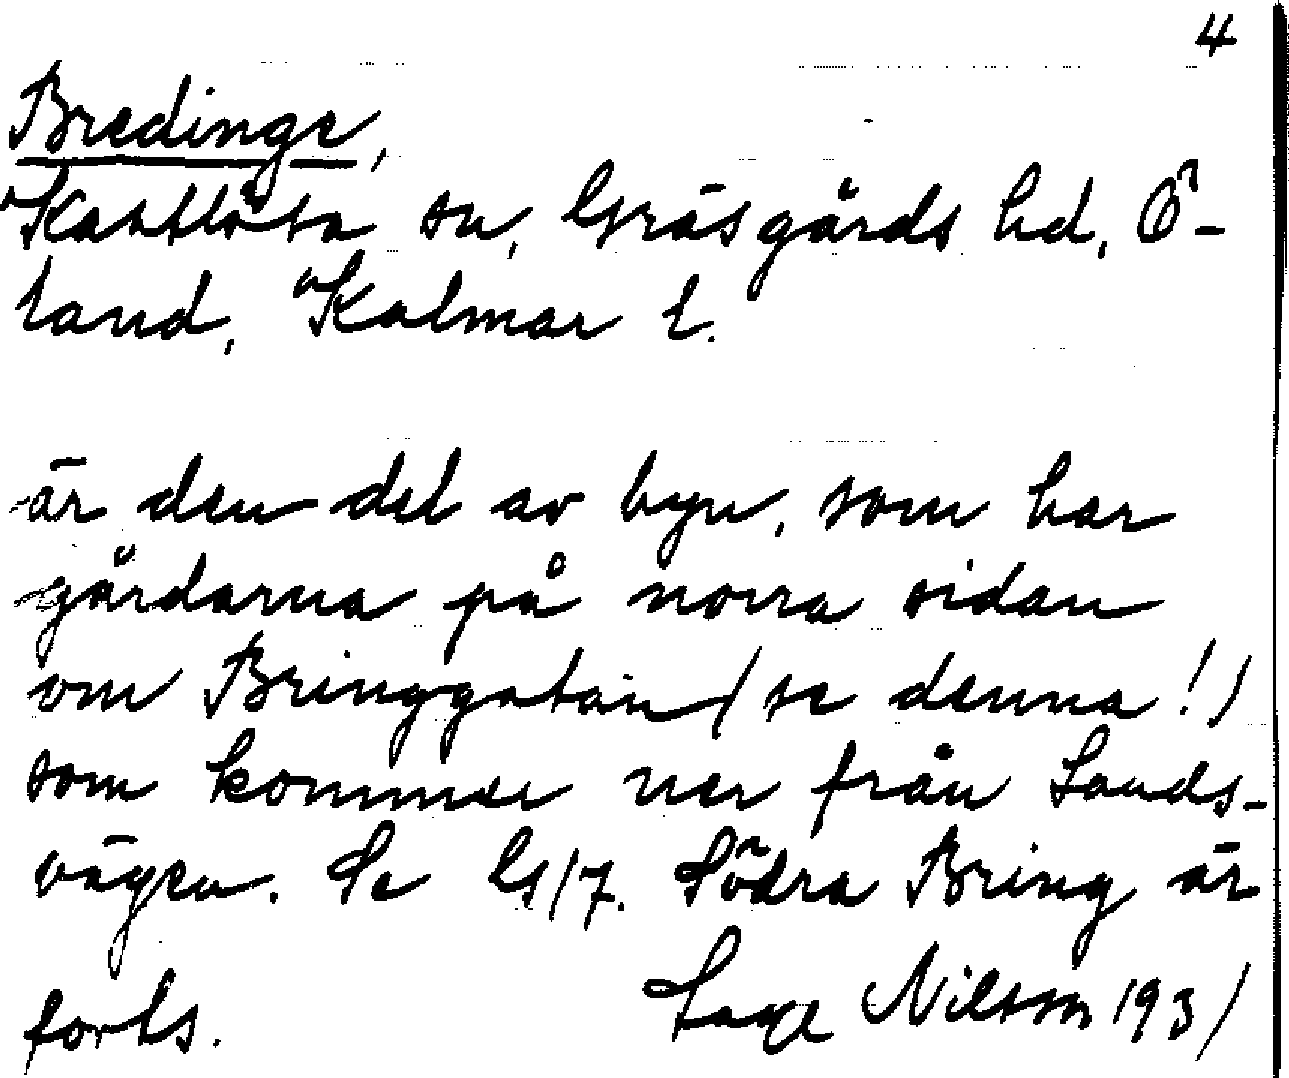 4
Bredinge,
Kastlösa sn, Gräsgårds hd, Ö-
land, Kalmar l.
är den del av byn, som har
gårdarna på norra sidan
om Bringgatan (se denna!)
som kommer ner från Lands-
vägen. Se G/7. Södra Bring är
forts. Lage Nilsson 1931